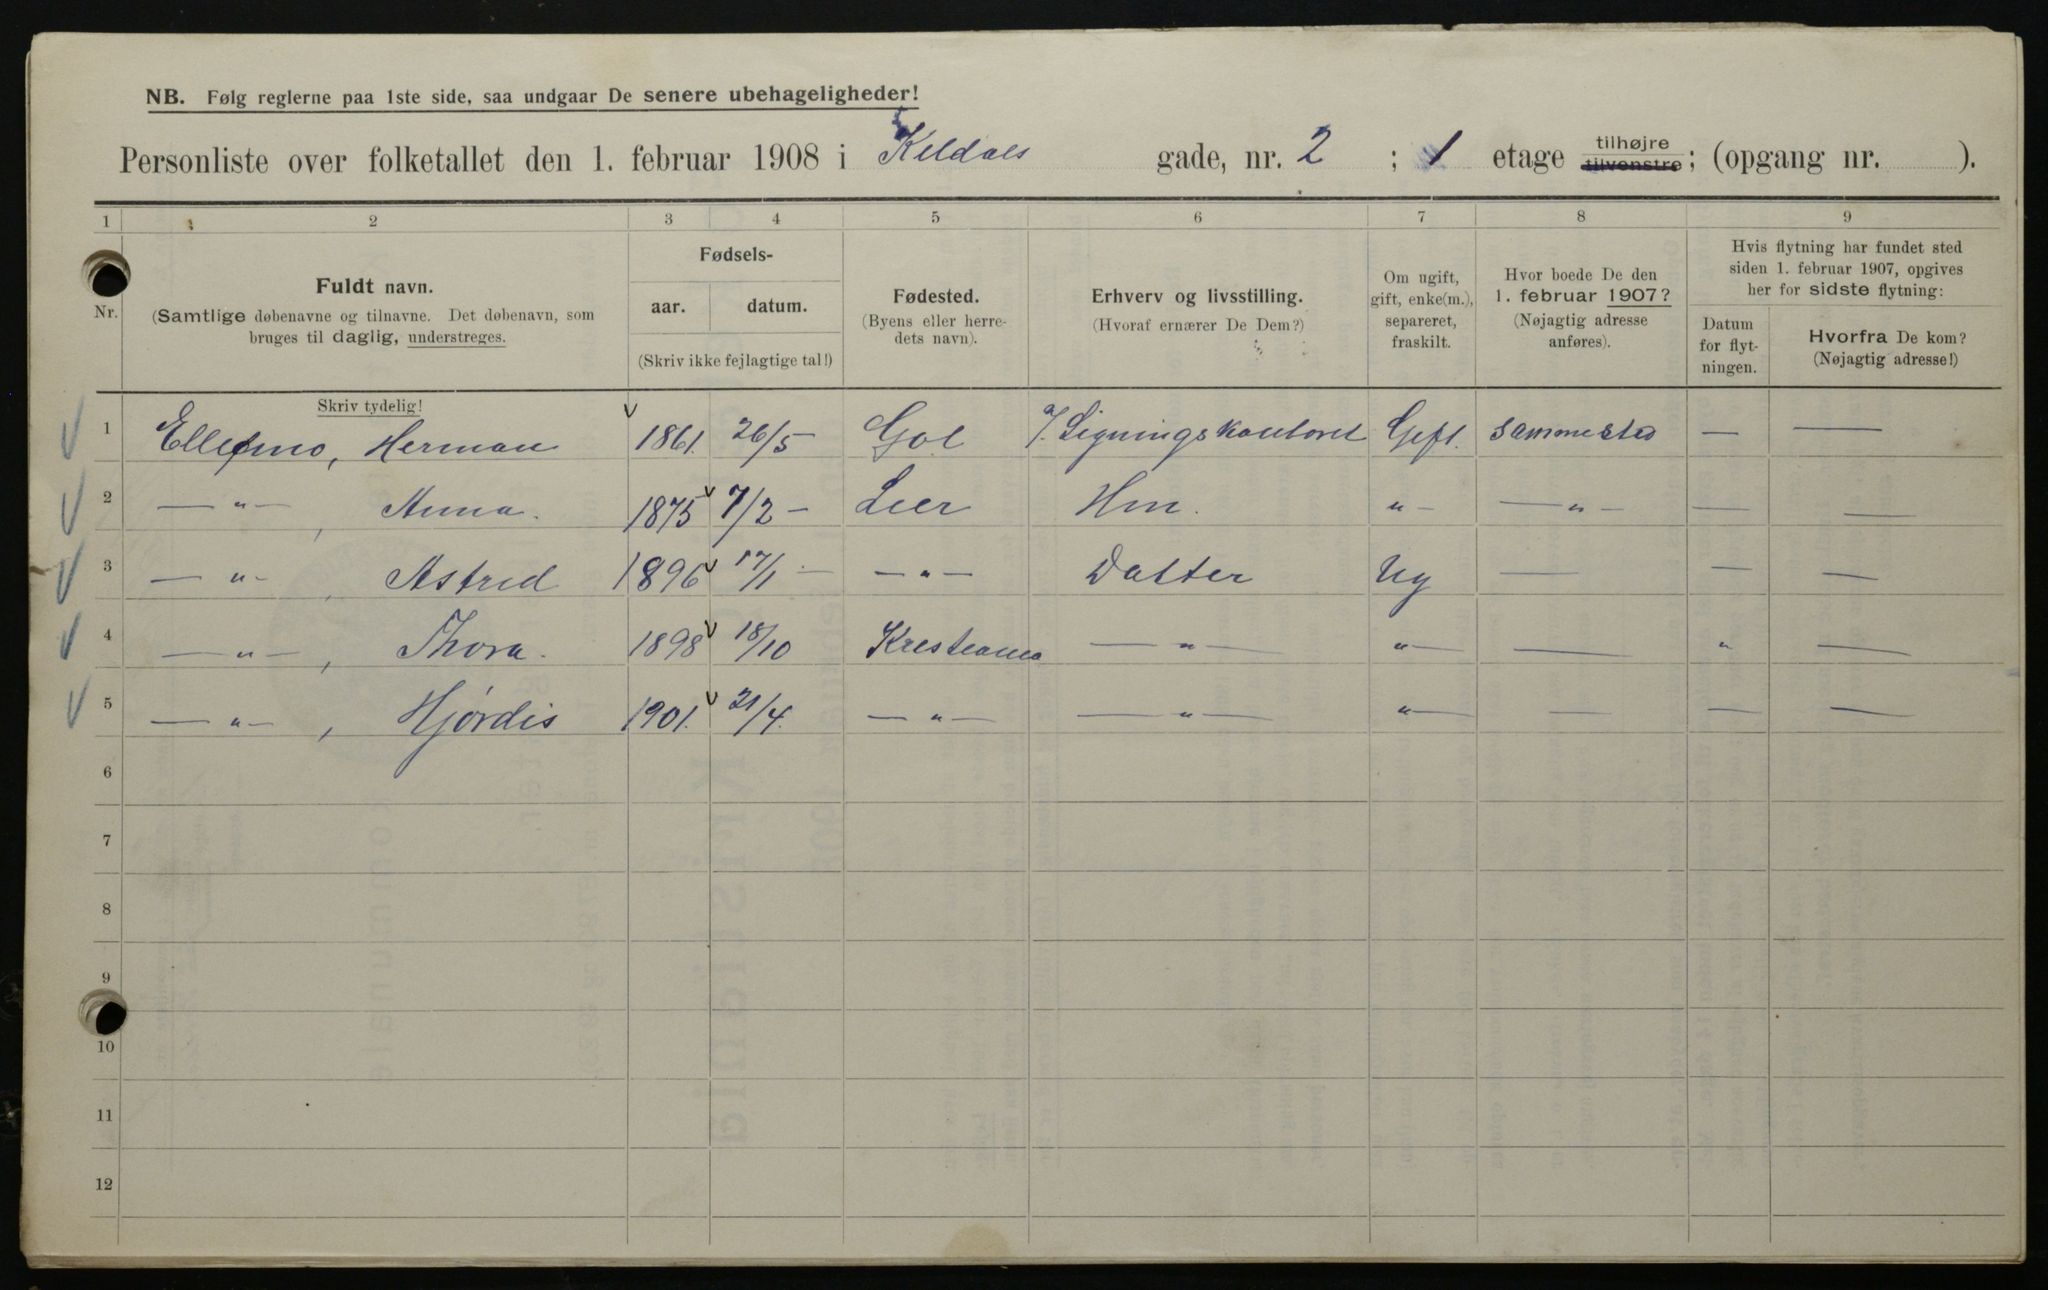 NB. Følg reglerne paa 1ste side, saa undgaar De senere ubehageligheder!
Personliste over folketallet den 1. februar 1908 i Keldals gade, nr. 2 ; 1 etage tilhøjre tilvenstre; (opgang nr. ).
1 2 3 4 5 6 7 8 9
Nr.
Fuldt navn.
(Samtlige døbenavne og tilnavne. Det døbenavn, som
bruges til daglig, understreges.
Skriv tydelig!
Fødsels-
aar. datum.
(Skriv ikke fejlagtige tal!)
Fødested.
(Byens eller herre-
dets navn).
Erhverv og livsstilling.
(Hvoraf ernærer De Dem?)
Om ugift,
gift, enke(m.),
separeret,
fraskilt.
Hvor boede De den
1. februar 1907?
(Nøjagtig adresse
anføres).
Hvis flytning har fundet sted
siden 1. februar 1907, opgives
her for sidste flytning:
Datum
for flyt-
ningen.
Hvorfra De kom?
(Nøjagtig adresse!)
1 Herman 1861. 26/5 — Gol Ligningskontoret Gift. sammested — —
2 — " — , Anna. 1875 7/2 — Lier Hm. " — — " — — —
3 — " — , Astrid 1896 17/1 — — " — Datter Ug — — —
4 — " — , Thora. 1898 18/10 Kristiania — " — " — — " —
5 — " — , Hjørdis 1901. 21/4. — " — — " — " — — — —
6
7
8
9
10
11
12